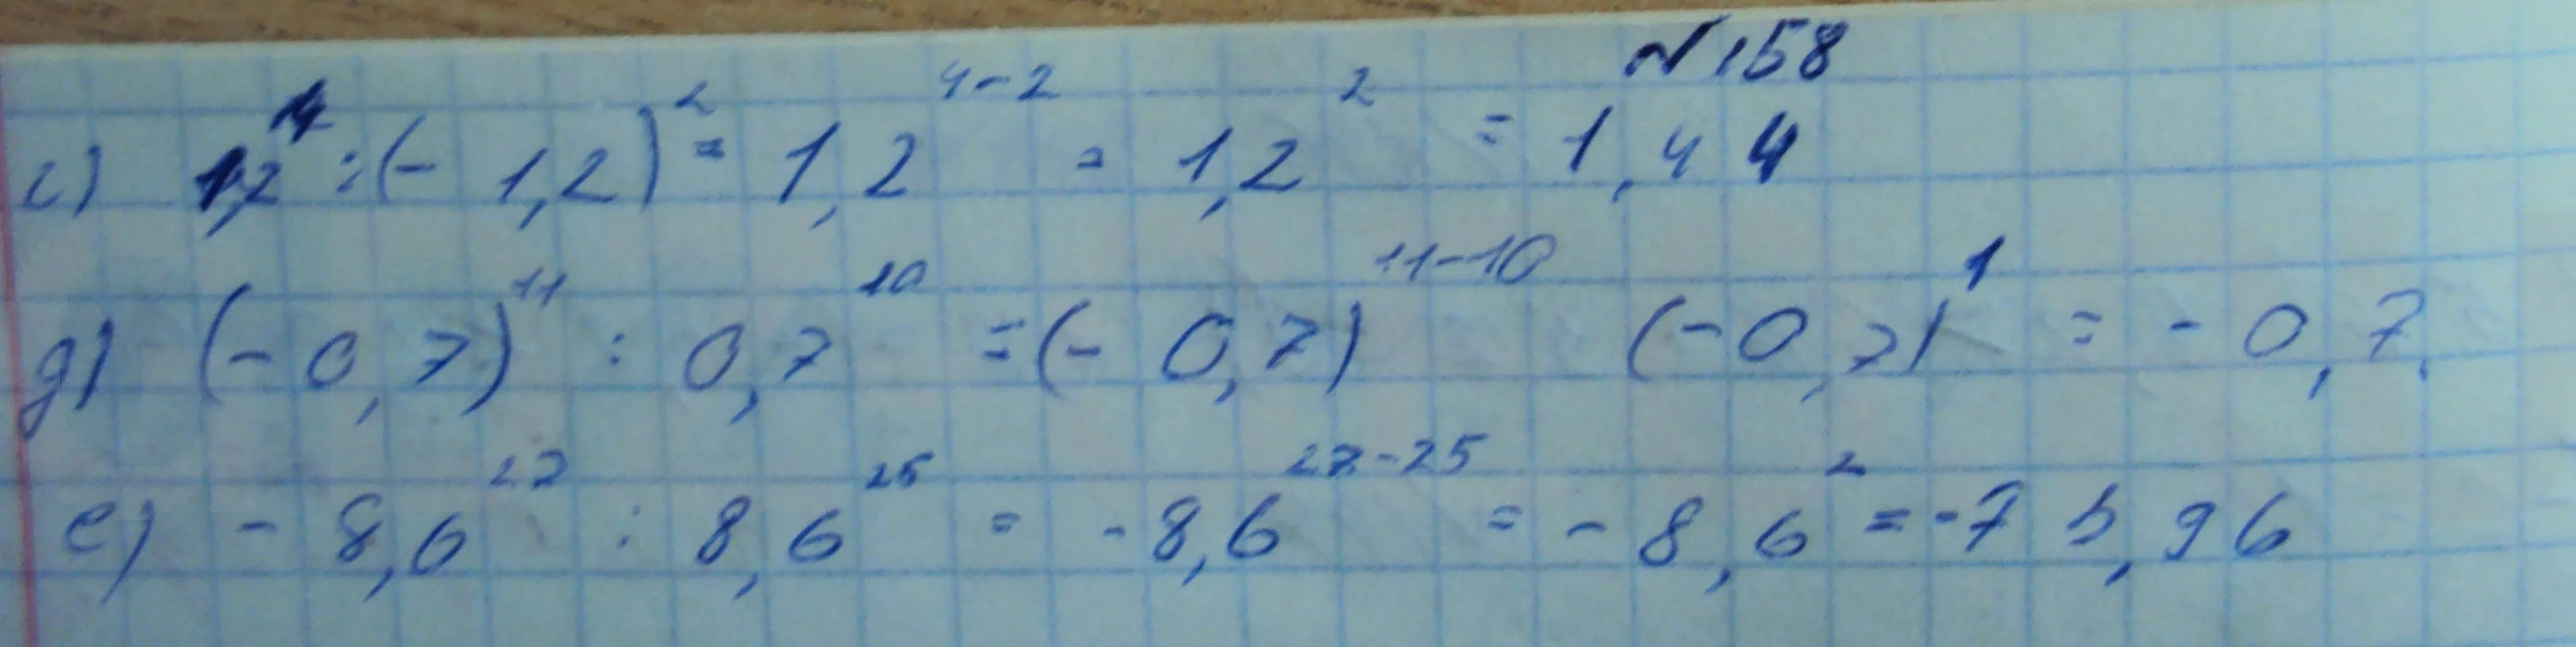 №158
г) 1,2⁴ : (- 1,2)² = 1,2⁴⁻² = 1,2² = 1,44
д) (- 0,7)¹¹ : 0,7¹⁰ = (- 0,7)¹¹⁻¹⁰ (-0,7)¹ = - 0,7.
е) - 8,6²⁷ : 8,6²⁵ = - 8,6²⁷⁻²⁵ = - 8,6² = -73,96